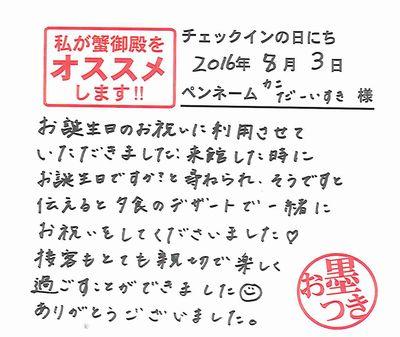 私が蟹御殿を
オススメ
します!!
チェックインの日にち
2016年 8月 3日
ペンネーム カニだーいすき 様
お誕生日のお祝いに利用させて
いただきました。来館した時に
お誕生日ですか?と尋ねられ、そうですと
伝えると夕食のデザートで一緒に
お祝いをしてくださいました♡
接客もとても親切で楽しく
過ごすことができました☺
ありがとうございました。
お墨つき